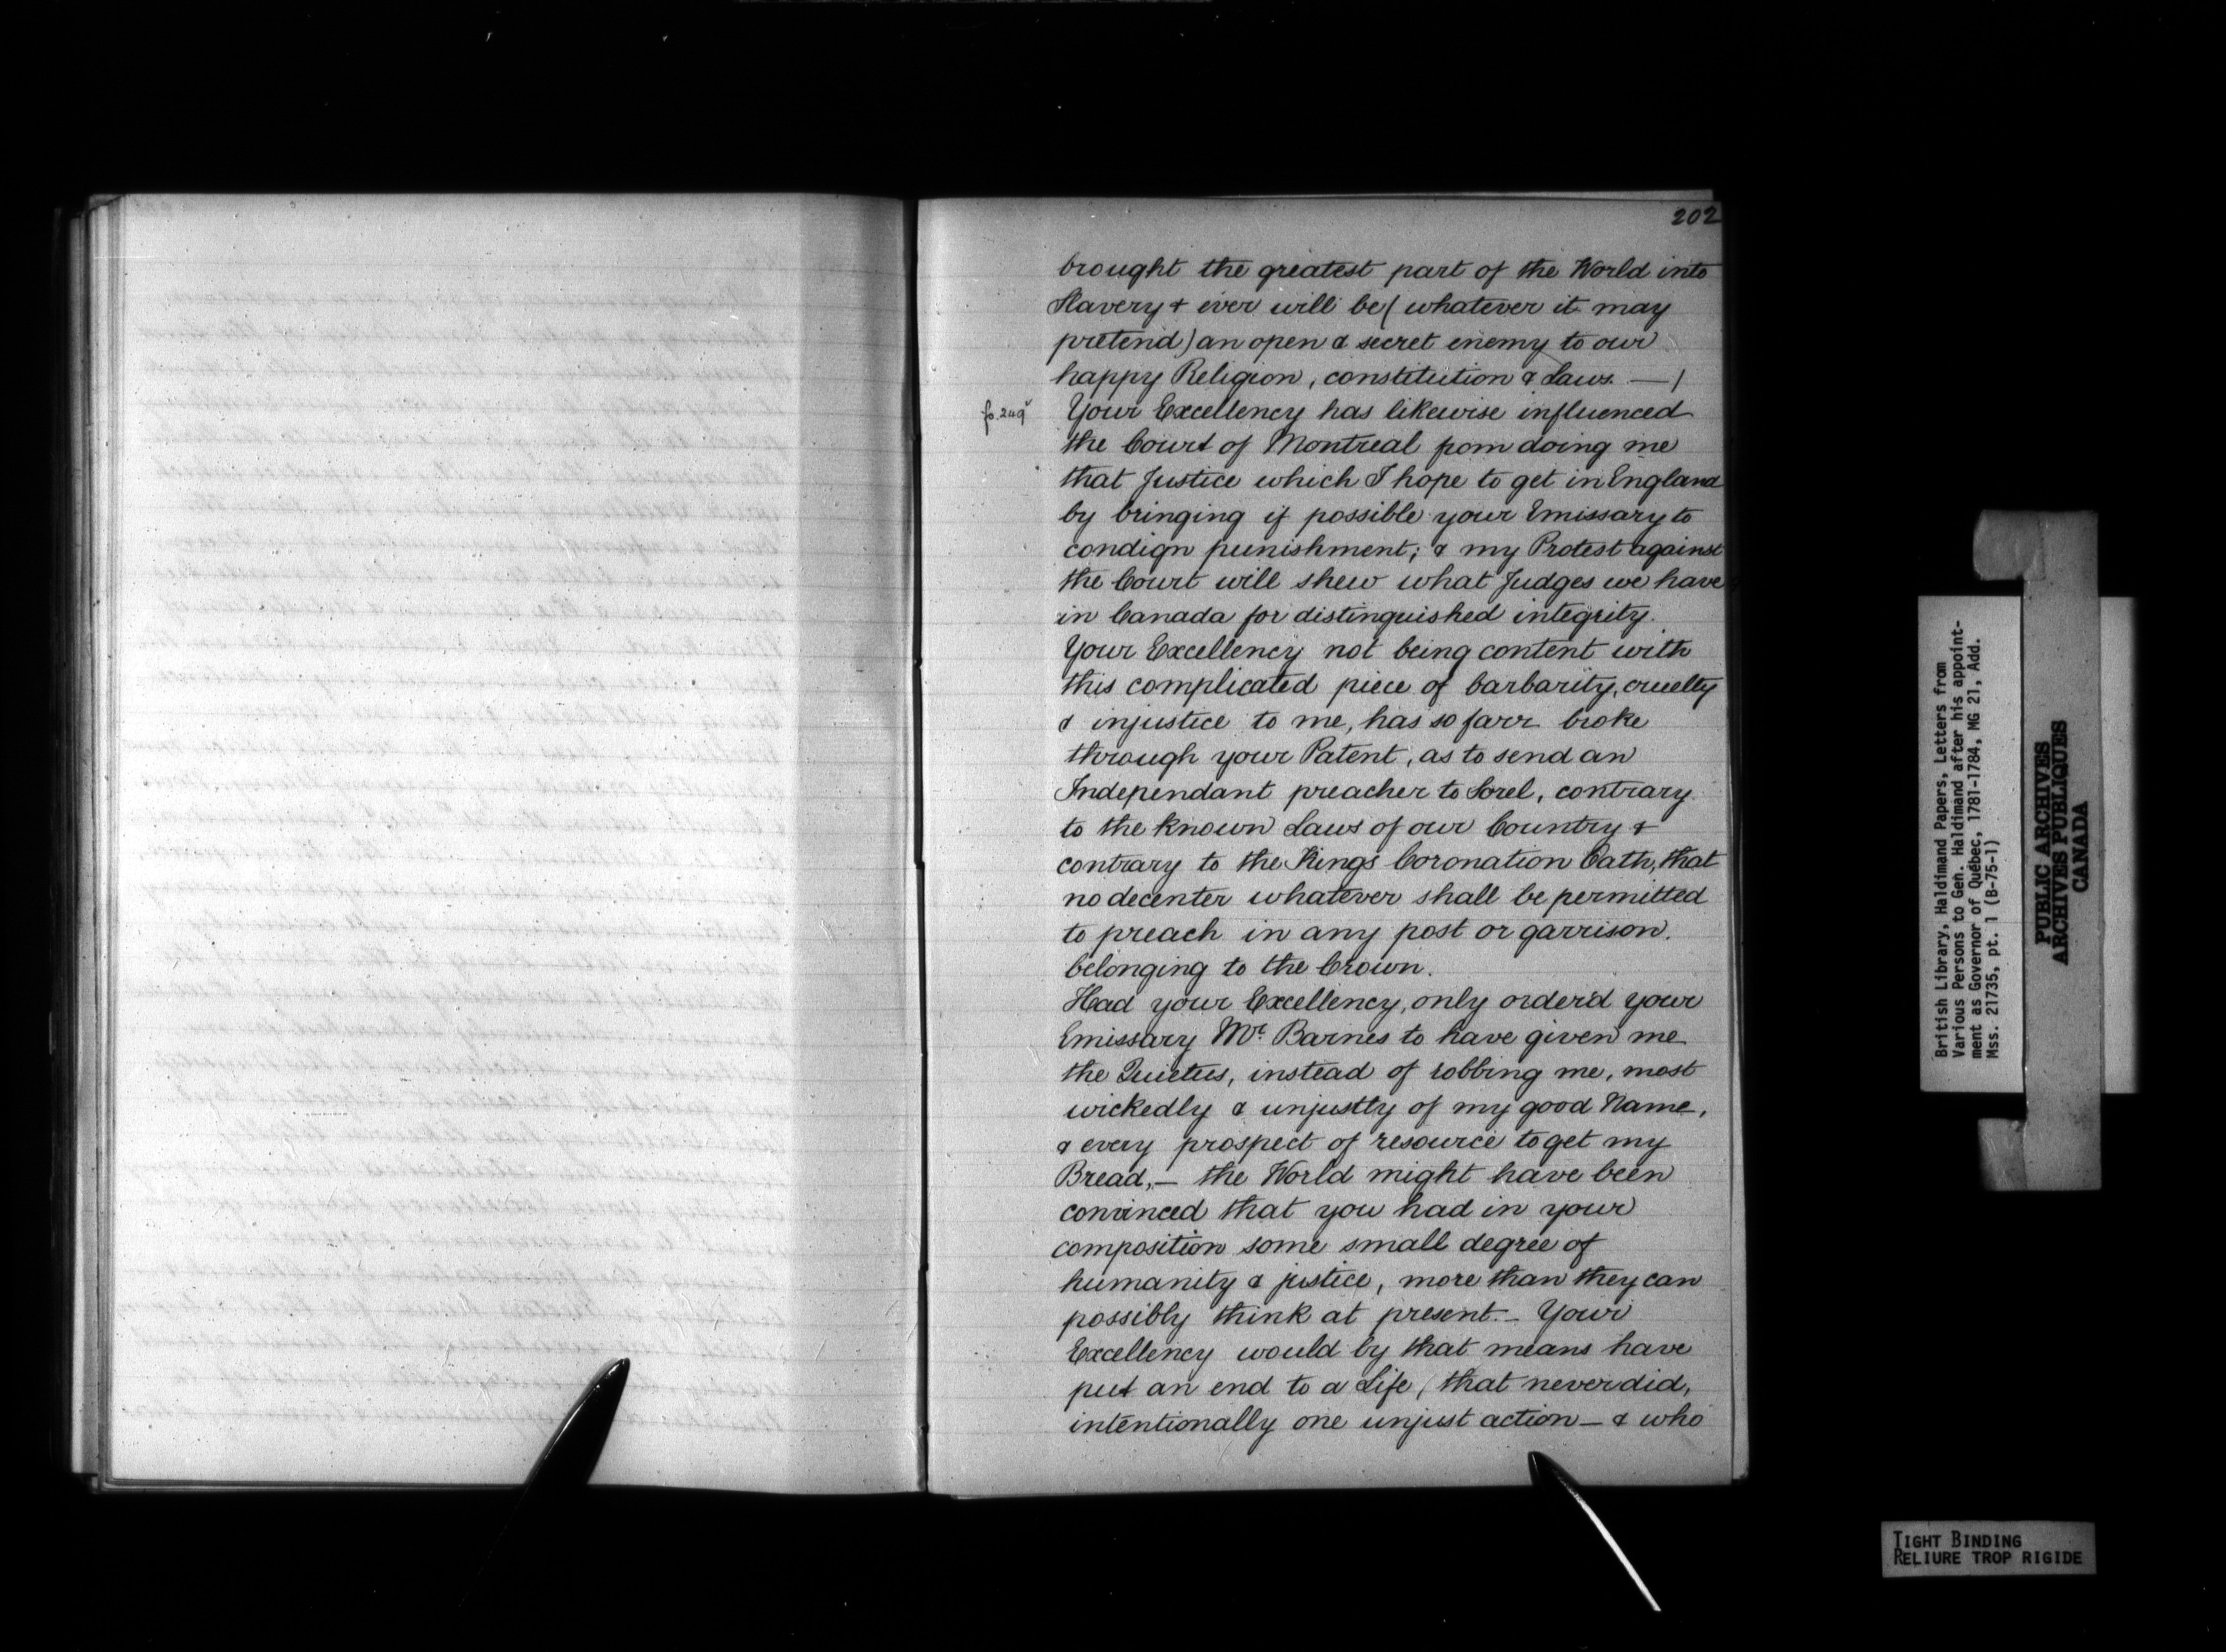 202
brought the greatest part of the World into
Slavery & ever will be (whatever it may
pretend) an open & secret enemy to our
happy Religion, constitution & Laws. —/
fo. 249v
Your Excellency has likewise influenced
the Court of Montreal from doing me
that Justice which I hope to get in England
by bringing if possible your Emissary to
condign punishment; & my Protest against
the Court will shew what Judges we have
in Canada for distinguished integrity.
Your Excellency not being content with
this complicated piece of barbarity, cruelty
& injustice to me, has so farr broke
through your Patent, as to send an
Independant preacher to Sorel, contrary
to the known Laws of our Country &
contrary to the Kings Coronation Oath, that
no decenter whatever shall be permitted
to preach in any post or garrison.
belonging to the Crown.
Had your Excellency, only order'd your
Emissary Mr. Barnes to have given me
the Quietus, instead of robbing me, most
wickedly & unjustly of my good Name,
& every prospect of resource to get my
Bread,— the World might have been
convinced that you had in your
composition some small degree of
humanity & justice, more than they can
possibly think at present.— Your
Excellency would by that means have
put an end to a Life, that never did,
intentionally one unjust action — & who
British Library, Haldimand Papers, Letters from
Various Persons to Gen. Haldimand after his appoint-
ment as Governor of Québec, 1781-1784, MG 21, Add.
Mss. 21735, pt. 1 (B-75-1)
PUBLIC ARCHIVES
ARCHIVES PUBLIQUES
CANADA
TIGHT BINDING
RELIURE TROP RIGIDE